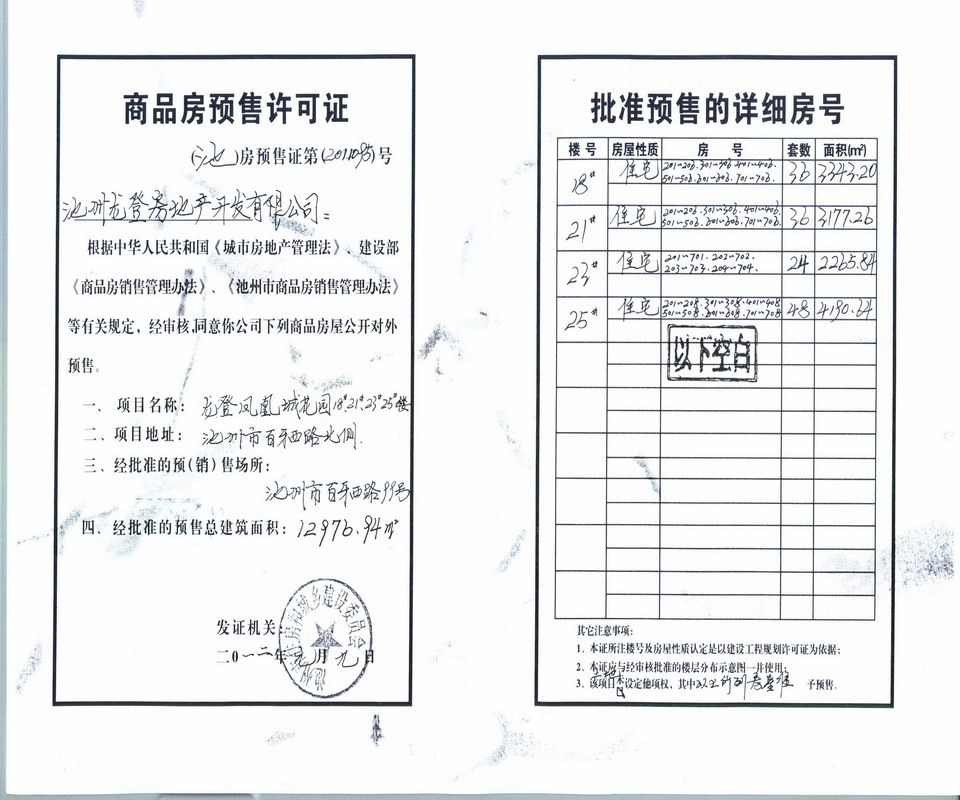 商品房预售许可证
(池)房预售证第(2011095)号
池州龙登房地产开发有限公司:
根据中华人民共和国《城市房地产管理法》、建设部
《商品房销售管理办法》、《池州市商品房销售管理办法》
等有关规定，经审核,同意你公司下列商品房屋公开对外
预售。
一、项目名称：龙登凤凰城花园18#21#23#25#楼
二、项目地址：池州市百牙西路北侧.
三、经批准的预(销)售场所：
池州市百牙西路99号
四、经批准的预售总建筑面积：12976.94㎡
发证机关：
二〇一二年元月九日
批准预售的详细房号
楼号 房屋性质 房号 套数 面积(m²)
18# 住宅 201~206.301~306.401~406. 36 3343.20
501~506.601~606.701~706.
21# 住宅 201~206.301~306.401~406 36 3177.26
501~506.601~606.701~706.
23# 住宅 201~701.202~702. 24 2265.84
203~703.204~704.
25# 住宅 201~208.301~308.401~408 48 4190.64
501~508.601~608.701~708
以下空白
其它注意事项：
1、本证所注楼号及房屋性质认定是以建设工程规划许可证为依据；
2、本证房与经审核批准的楼层分布示意图一并使用；
3、该项目 设定他项权，其中以上所列 准 予预售。